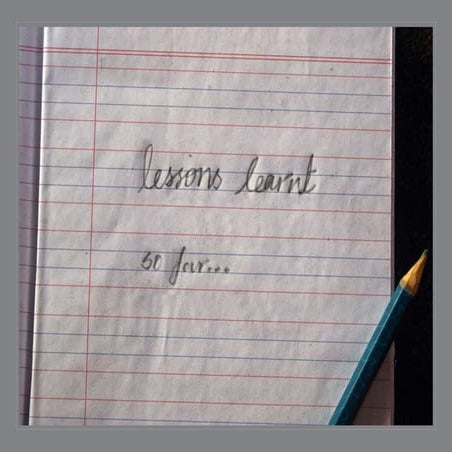 lessons learnt
so far...